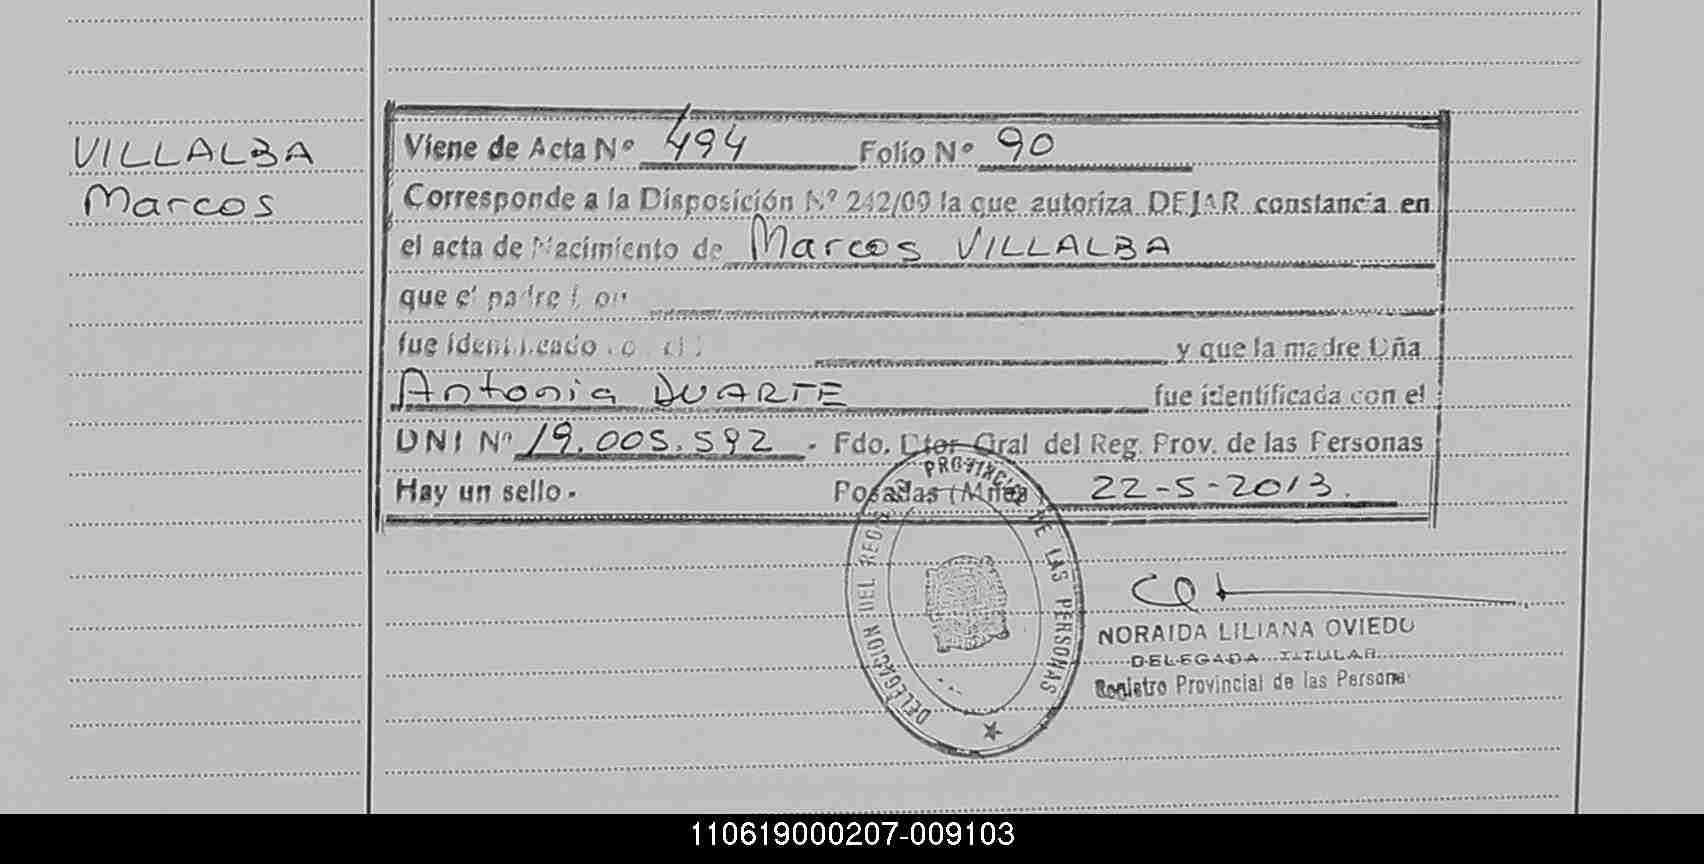 VILLALBA
Marcos
Viene de Acta Nº 494 Folio Nº 90
Corresponde a la Disposición Nº 242/09 la que autoriza DEJAR constancia en
el acta de Nacimiento de Marcos VILLALBA
que el padre
fue identificado y que la madre Dña
Antonia DUARTE fue identificada con el
DNI Nº 19.005.592 - Fdo. Dtor Gral del Reg. Prov. de las Personas
Hay un sello. Posadas (Mnes) 22-5-2013.
DELEGACION DEL REG. PROVINCIAL DE LAS PERSONAS
NORAIDA LILIANA OVIEDO
DELEGADA TITULAR
Registro Provincial de las Persona
110619000207-009103